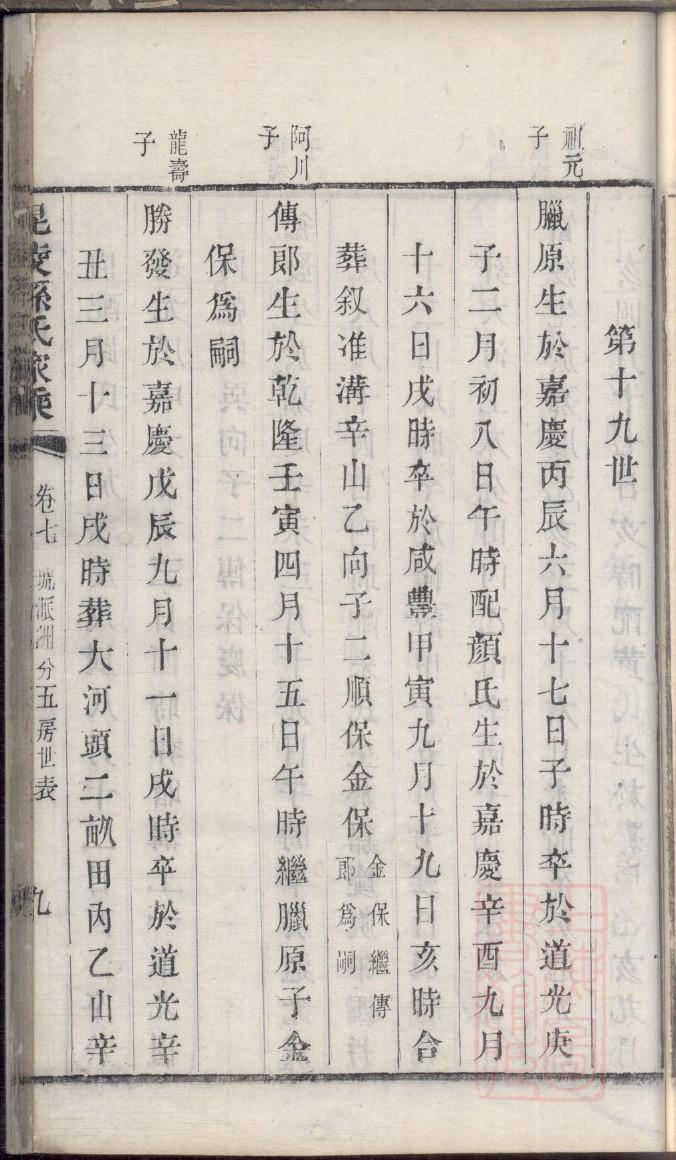 第十九世
祖元
子
臘原生於嘉慶丙辰六月十七日子時卒於道光庚
子二月初八日午時配顏氏生於嘉慶辛酉九月
十六日戌時卒於咸豐甲寅九月十九日亥時合
葬叙准溝辛山乙向子二順保金保金保繼傳
郎爲嗣
阿川
子
傳郎生於乾隆壬寅四月十五日午時繼臘原子金
保爲嗣
龍壽
子
勝發生於嘉慶戊辰九月十一日戌時卒於道光辛
丑三月十三日戌時葬大河頭二畝田內乙山辛
毘陵孫氏家乘
卷七
派洲分五房世表
九